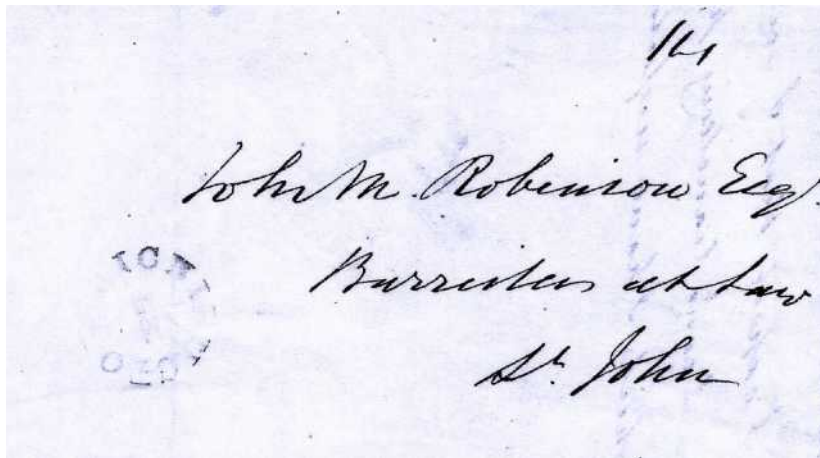 John M. Robinson Esqr.
Barrister at Law
St. John